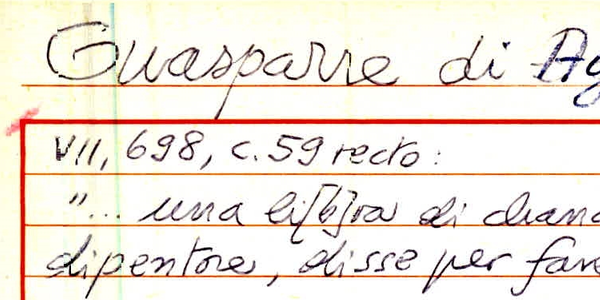 Guasparre di Ag
VII, 698, c. 59 recto:
"... una li[b]ra di
dipentore, disse per fare